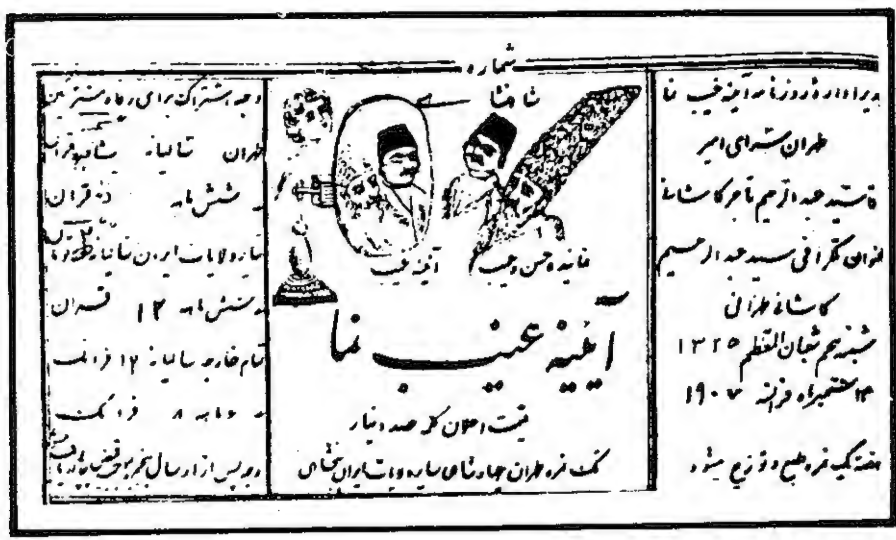 شماره
مدیر اداره روزنامه آئینه غیب نما
طهران سرای امیر
آقا سید عبدالرحیم تاجر کاشانی
عنوان تلگرافی سید عبدالرحیم
کاشانی طهرانی
شعبان المعظم ۱۳۲۵
فرانسه ۱۹۰۷
هفته یک نمره طبع و توزیع میشود
نماینده حسن و عیب
آئینه غیب
آئینه غیب نما
قیمت اعلان کلمه صد دینار
تک نمره طهران چهار شاهی سایره ولایات ایران پنجشاهی
وجه اشتراک برای رفاه مشترکین
طهران سالیانه قران
شش ماهه ده قران
سایر ولایات ایران سالیانه
شش ماهه ۱۲ قران
تمام خارجه سالیانه ۱۲ فرانک
ماهه ۸ فرانک
وجه پس از ارسال